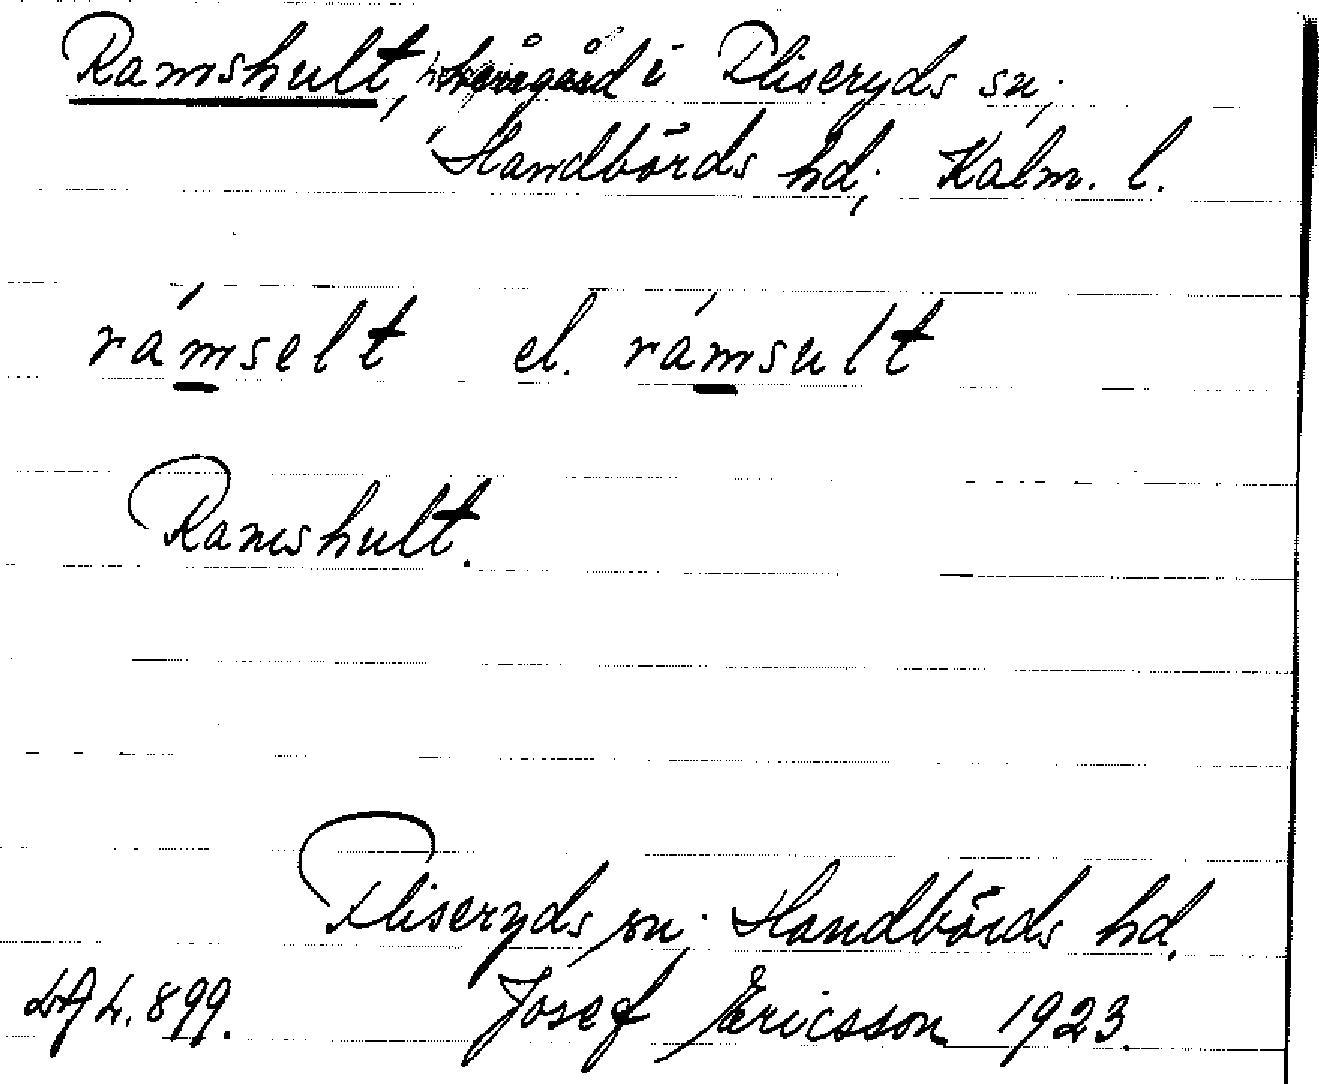 Ramshult, i Fliseryds sn;
Handbörds hd; Kalm. l.
rámselt el. rámsult
Ramshult.
Fliseryds sn; Handbörds hd.
h. 899. Josef Ericsson 1923.